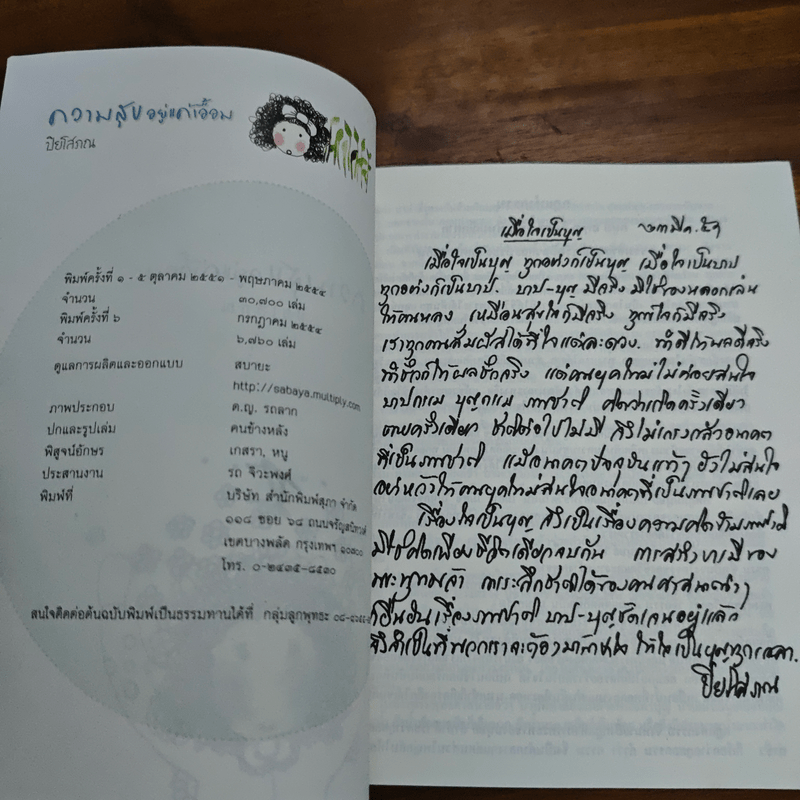 ความสุขอยู่แค่เอื้อม
ปิยโสภณ
พิมพ์ครั้งที่ ๑ - ๕ ตุลาคม ๒๕๕๑ - พฤษภาคม ๒๕๕๔
จำนวน ๓๐,๗๐๐ เล่ม
พิมพ์ครั้งที่ ๖ กรกฎาคม ๒๕๕๔
จำนวน ๖,๗๖๐ เล่ม
ดูแลการผลิตและออกแบบ สบายะ
http://sabaya.multiply.com
ภาพประกอบ ด.ญ. รถลาก
ปกและรูปเล่ม คนข้างหลัง
พิสูจน์อักษร เกสรา, หนู
ประสานงาน รถ จิวะพงศ์
พิมพ์ที่ บริษัท สำนักพิมพ์สุภา จำกัด
๑๑๘ ซอย ๖๘ ถนนจรัญสนิทวงศ์
เขตบางพลัด กรุงเทพฯ ๑๐๗๐๐
โทร. ๐-๒๔๓๕-๘๕๓๐
สนใจติดต่อต้นฉบับพิมพ์เป็นธรรมทานได้ที่ กลุ่มลูกพุทธะ
เมื่อใจเป็นบุญ
เมื่อใจเป็นบุญ ทุกอย่างก็เป็นบุญ เมื่อใจเป็นบาป
ทุกอย่างก็เป็นบาป. บาป-บุญ มีจริง มิใช่ของหลอกเล่น
ให้คนหลง เหมือนสุขใจก็มีจริง ทุกข์ใจก็มีจริง
เราทุกคนสัมผัสได้ที่ใจแต่ละดวง. ทำดีให้ผลดีจริง
ทำชั่วก็ให้ผลชั่วจริง แต่คนยุคใหม่ไม่ค่อยสนใจ
บาปกรรม บุญกรรม ภพชาติ คิดว่าเกิดครั้งเดียว
ตายครั้งเดียว ชาติต่อไปไม่มี จึงไม่เกรงกลัวอนาคต
ที่เป็นภพชาติ แม้อนาคตปัจจุบันแท้ๆ ยังไม่สนใจ
อย่าหวังให้คนยุคใหม่สนใจอนาคตที่เป็นภพชาติเลย
เรื่องใจเป็นบุญ จึงเป็นเรื่องความคิดข้ามภพชาติ
มิใช่คิดเพียงชีวิตเดียวจบกัน การสร้างบารมีของ
พระพุทธเจ้า การระลึกชาติได้ของคนศาสนาต่างๆ
ก็ยืนยันเรื่องภพชาติ บาป-บุญชัดเจนอยู่แล้ว
จึงจำเป็นที่พวกเราจะต้องมาทำใจ ให้ใจเป็นบุญทุกเวลา.
ปิยโสภณ